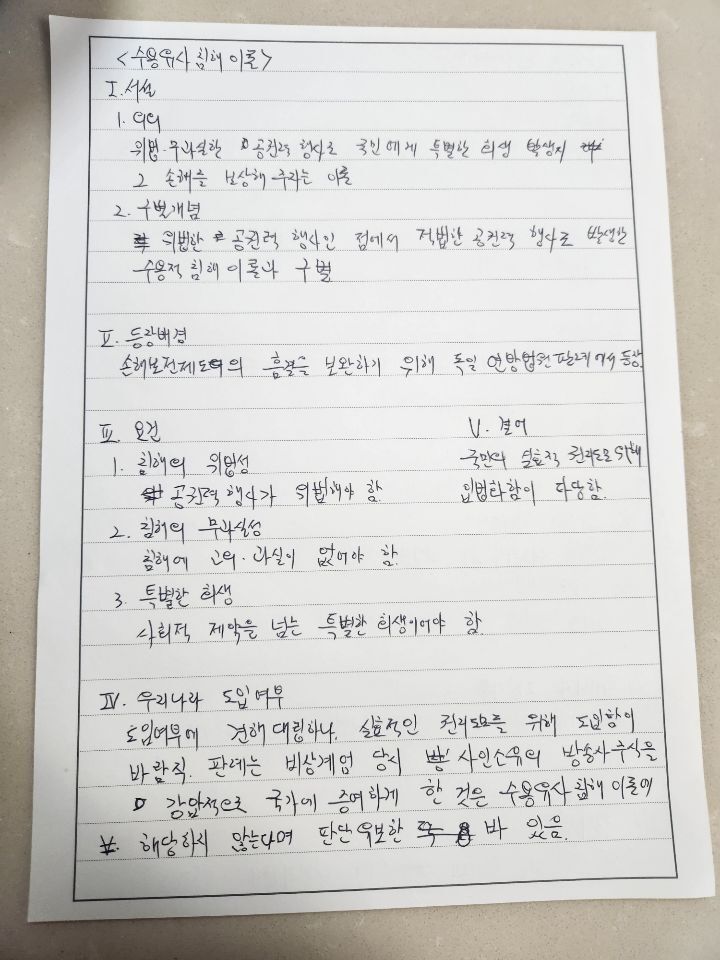 <수용유사 침해 이론>
I. 서설
1. 의의
위법·무과실한 공권력 행사로 국민에게 특별한 희생 발생시
그 손해를 보상해 주자는 이론
2. 구별개념
위법한 공권력 행사인 점에서 적법한 공권력 행사로 발생한
수용적 침해 이론과 구별
II. 등장배경
손해보전제도의 흠결을 보완하기 위해 독일 연방법원 판례에서 등장
III. 요건
1. 침해의 위법성
공권력 행사가 위법해야 함.
2. 침해의 무과실성
침해에 고의·과실이 없어야 함.
3. 특별한 희생
사회적 제약을 넘는 특별한 희생이어야 함.
IV. 우리나라 도입여부
도입여부에 견해 대립하나, 실효적인 권리보호를 위해 도입함이
바람직. 판례는 비상계엄 당시 사인소유의 방송사주식을
강압적으로 국가에 증여하게 한 것은 수용유사침해 이론에
해당하지 않는다며 판단 유보한 바 있음.
V. 결어
국민의 실효적 권리보호 위해
입법타함이 타당함.